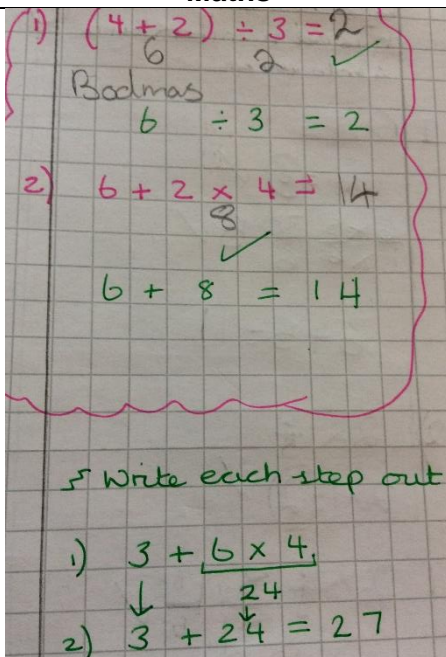 1) (4 + 2) ÷ 3 = 2
6 2 ✓
Bodmas
6 ÷ 3 = 2
2) 6 + 2 × 4 = 14
8
✓
6 + 8 = 14
Write each step out
1) 3 + 6 × 4
24
2) 3 + 24 = 27